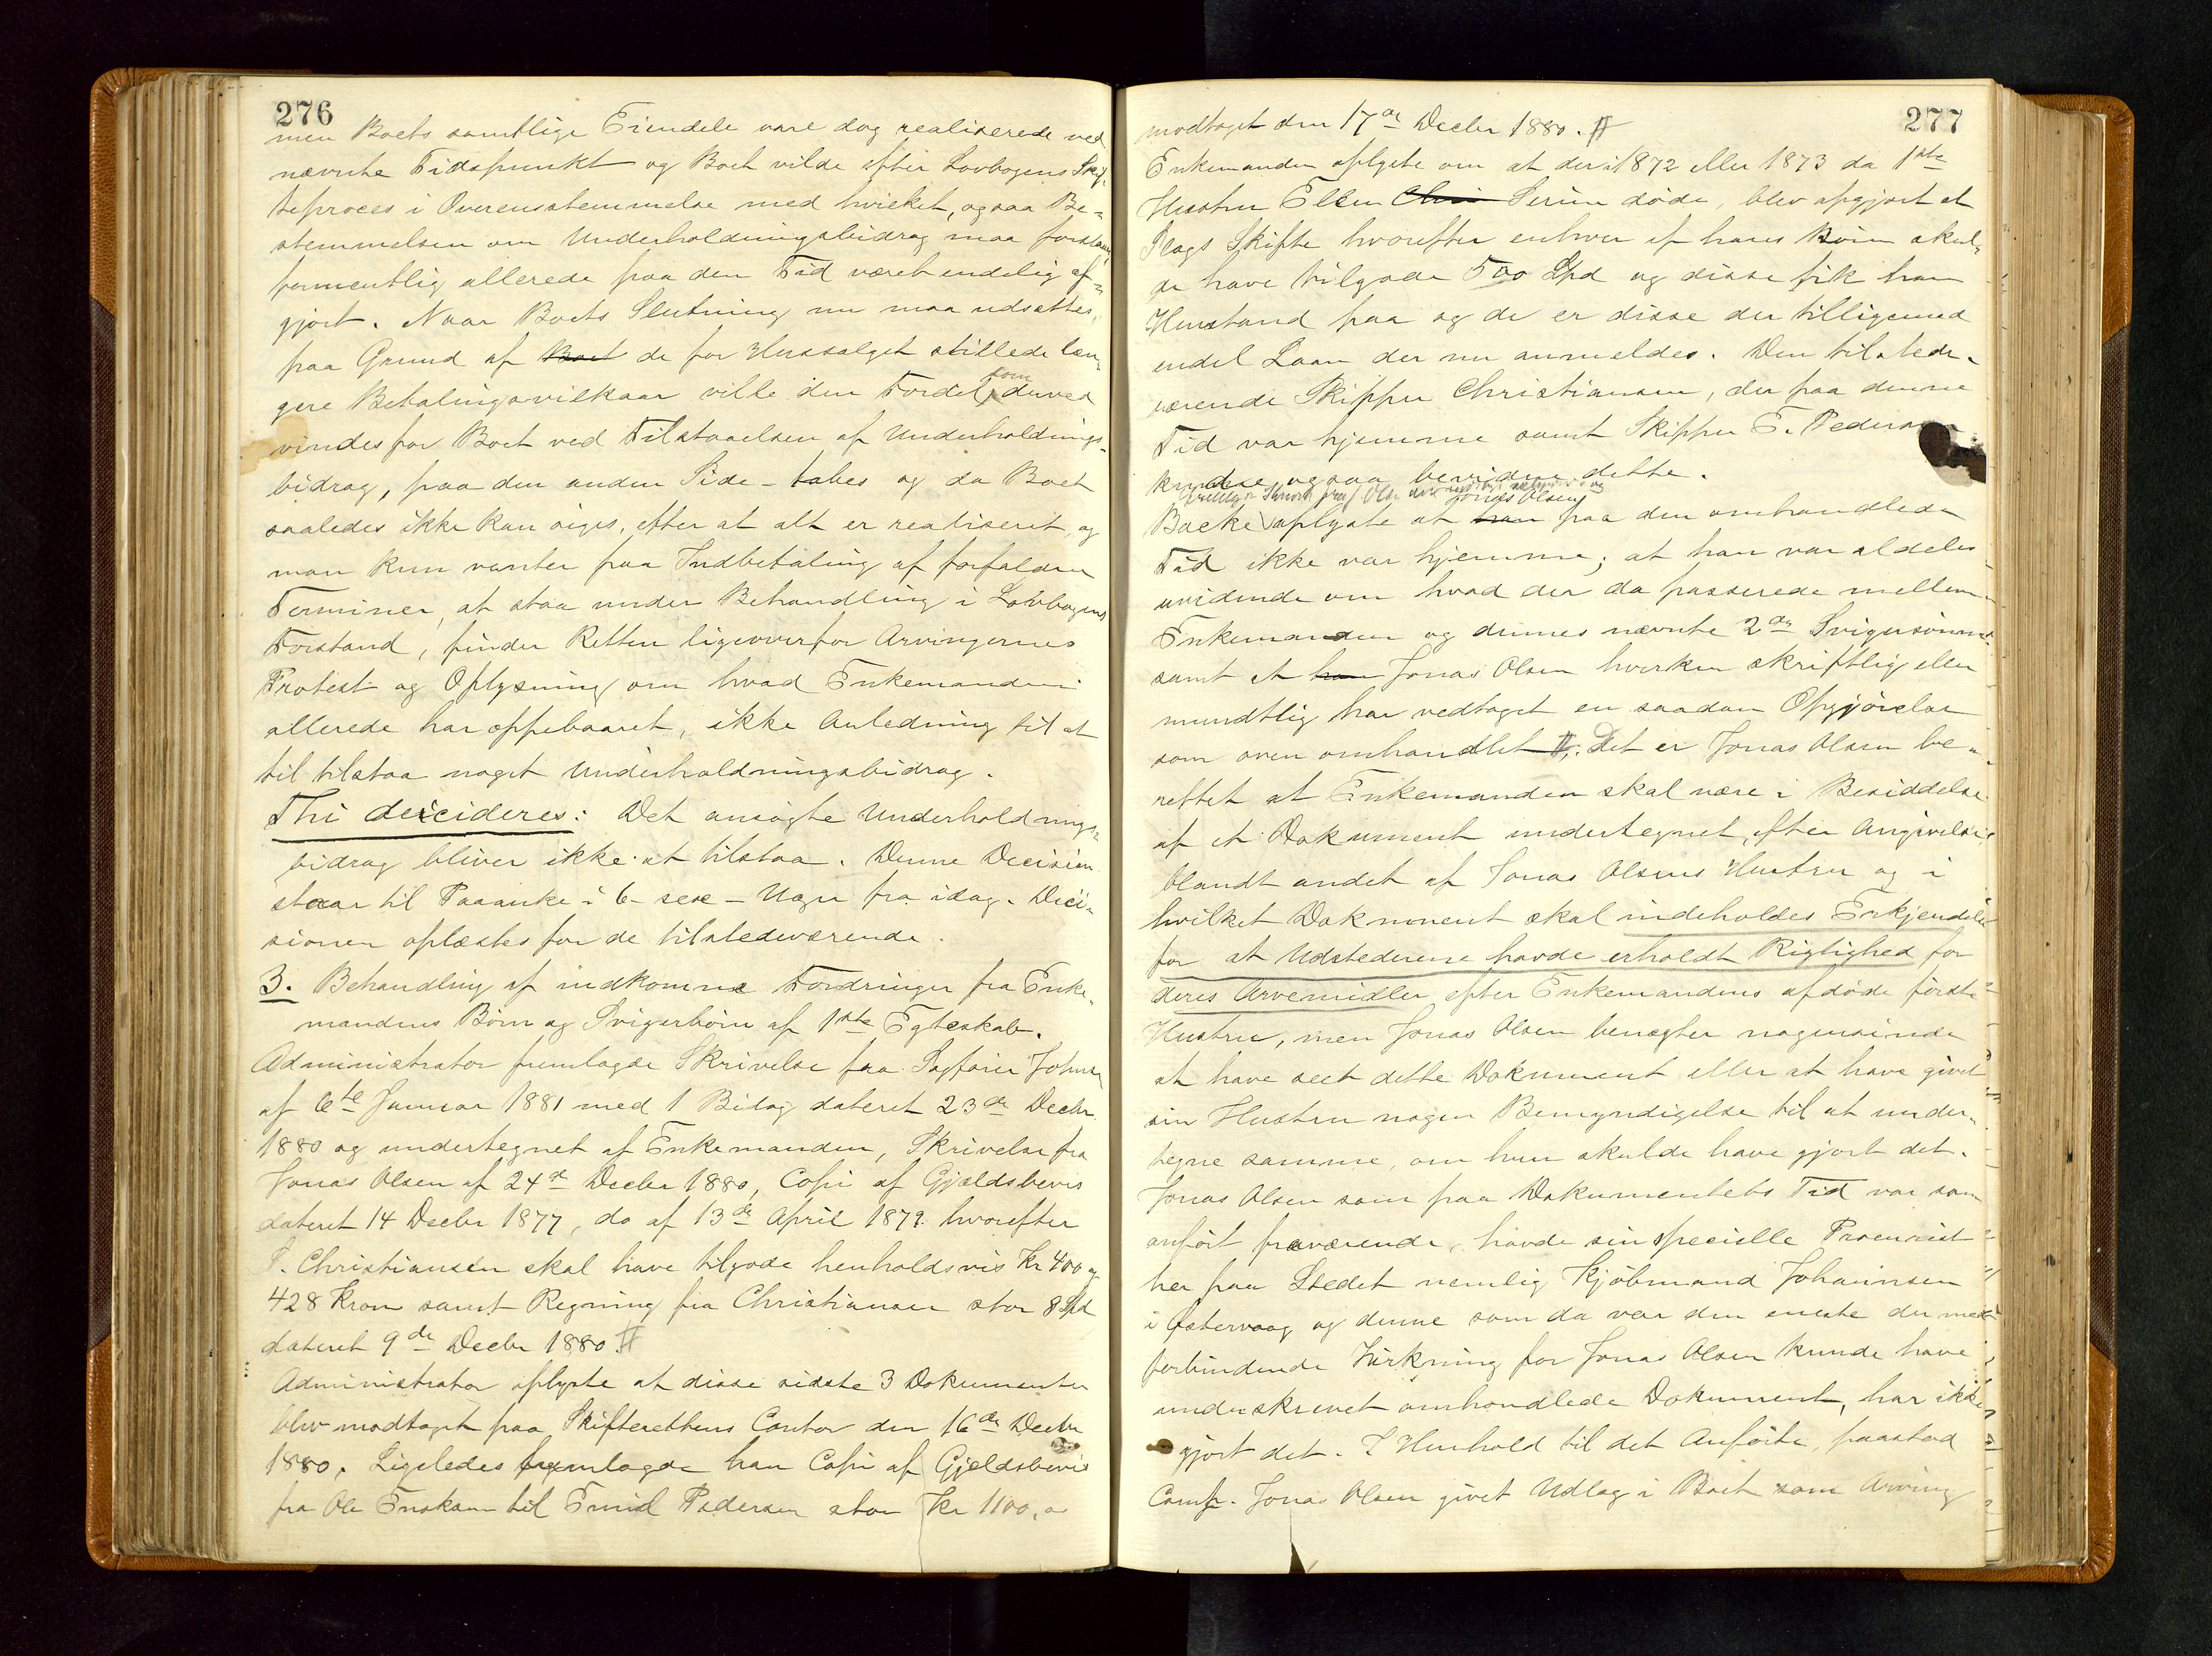 276
men Boets samtlige Eiendele vare dog realiserede ved
nævnte Tidspunkt og Boet vilde efter Lovbogens Skif-
teproces i Overensstemmelse med hvilket, ogsaa Be-
stemmelsen om Underholdningsbidrag maa forstaaes,
formentlig allerede paa den Tid været endelig af-
gjort. Naar Boets Slutning nu maa udsættes,
paa Grund af Boet de for Hussalget stillede læn-
gere Betalingsvilkaar ville den Fordel, som derved
vindes for Boet ved Tilstaaelsen af Underholdnings-
bidrag, paa den anden Side - tabes og da Boet
saaledes ikke kan siges, efter at alt er realiseret, og
man kun venter paa Indbetaling af forfaldne
Terminer, at staa under Behandling i Lovbogens
Forstand, finder Retten ligeoverfor Arvingernes
Protest og Oplysning om hvad Enkemanden
allerede har oppebaaret, ikke Anledning til at
til tilstaa noget Underholdningsbidrag.
Thi decideres: Det ansøgte Underholdnings-
bidrag bliver ikke at tilstaa. Denne Decision
staar til Paaanke i 6 - sex - Uger fra idag. Deci-
sionen oplæstes for de tilstedeværende.
3. Behandling af indkomne Fordringer fra Enke-
mandens Børn og Svigerbørn af 1ste Egteskab.
Administrator fremlagde Skrivelse fra Sagfører Johnsen
af 6te Januar 1881 med 1 Bilag dateret 23de Decbr
1880 og undertegnet af Enkemanden, Skrivelse fra
Jonas Olsen af 24de Decbr 1880, Copi af Gjældsbevis
dateret 14 Decbr 1877, do af 13de April 1879 hvorefter
P. Christiansen skal have tilgode henholdsvis Kr 400 og
428 Kroner samt Regning fra Christiansen stor 8 Spd
dateret 9de Decbr 1880. #
Administrator oplyste at disse sidste 3 Dokumenter
blev modtaget paa Skifterettens Contor den 16de Decbr
1880. Ligeledes fremlagde han Copi af Gjeldsbevis
fra Ole Enoksen til Emil Pedersen stor Kr 1100,
277
modtaget den 17de Decbr 1880. #
Enkemanden oplyste om at der i 1872 eller 1873 da 1ste
Hustru Ellen Chri Serine døde, blev opgjort et
Slags Skifte hvorefter enhver af hans Børn skul-
de have tilgode 500 Spd og disse fik han
Henstand paa og de er disse der tilligemed
endel Laan der nu anmeldes. Den tilstede-
værende Skipper Christiansen, der paa denne
Tid var hjemme samt Skipper E. Pedersen
kunde ogsaa bevidne dette.
Backe oplyste at han Jonas Olsen paa den omhandlede
Tid ikke var hjemme; at han var aldeles
uvidende om hvad der da passerede mellem
Enkemanden og dennes nævnte 2de Svigersønner
samt at han Jonas Olsen hverken skriftlig eller
mundtlig har vedtaget en saadan Opgjørelse
som oven omhandlet #. Det er Jonas Olsen be-
rettet at Enkemanden skal være i Besiddelse
af et Dokument undertegnet, efter Angivelse,
blandt andet af Jonas Olsens Hustru og i
hvilket Dokument skal indeholdes Erkjendelse
for at Udstederne havde erholdt Rigtighed for
deres Arvemidler efter Enkemandens afdøde første
Hustru, men Jonas Olsen benægter nogensinde
at have seet dette Dokument eller at have givet
sin Hustru nogen Bemyndigelse til at under-
tegne samme, om hun skulde have gjort det.
Jonas Olsen som paa Dokumentets Tid var som
anført fraværende, havde sin specielle Procurist
her paa Stedet nemlig Kjøbmand Johannsen
i Østervaag og denne som da var den eneste der med
forbindende Virkning for Jonas Olsen kunde have
underskrevet omhandlede Dokument, har ikke
gjort det. I Henhold til det Anførte, paastod
Comp. Jonas Olsen givet Udlæg i Boet som Arving